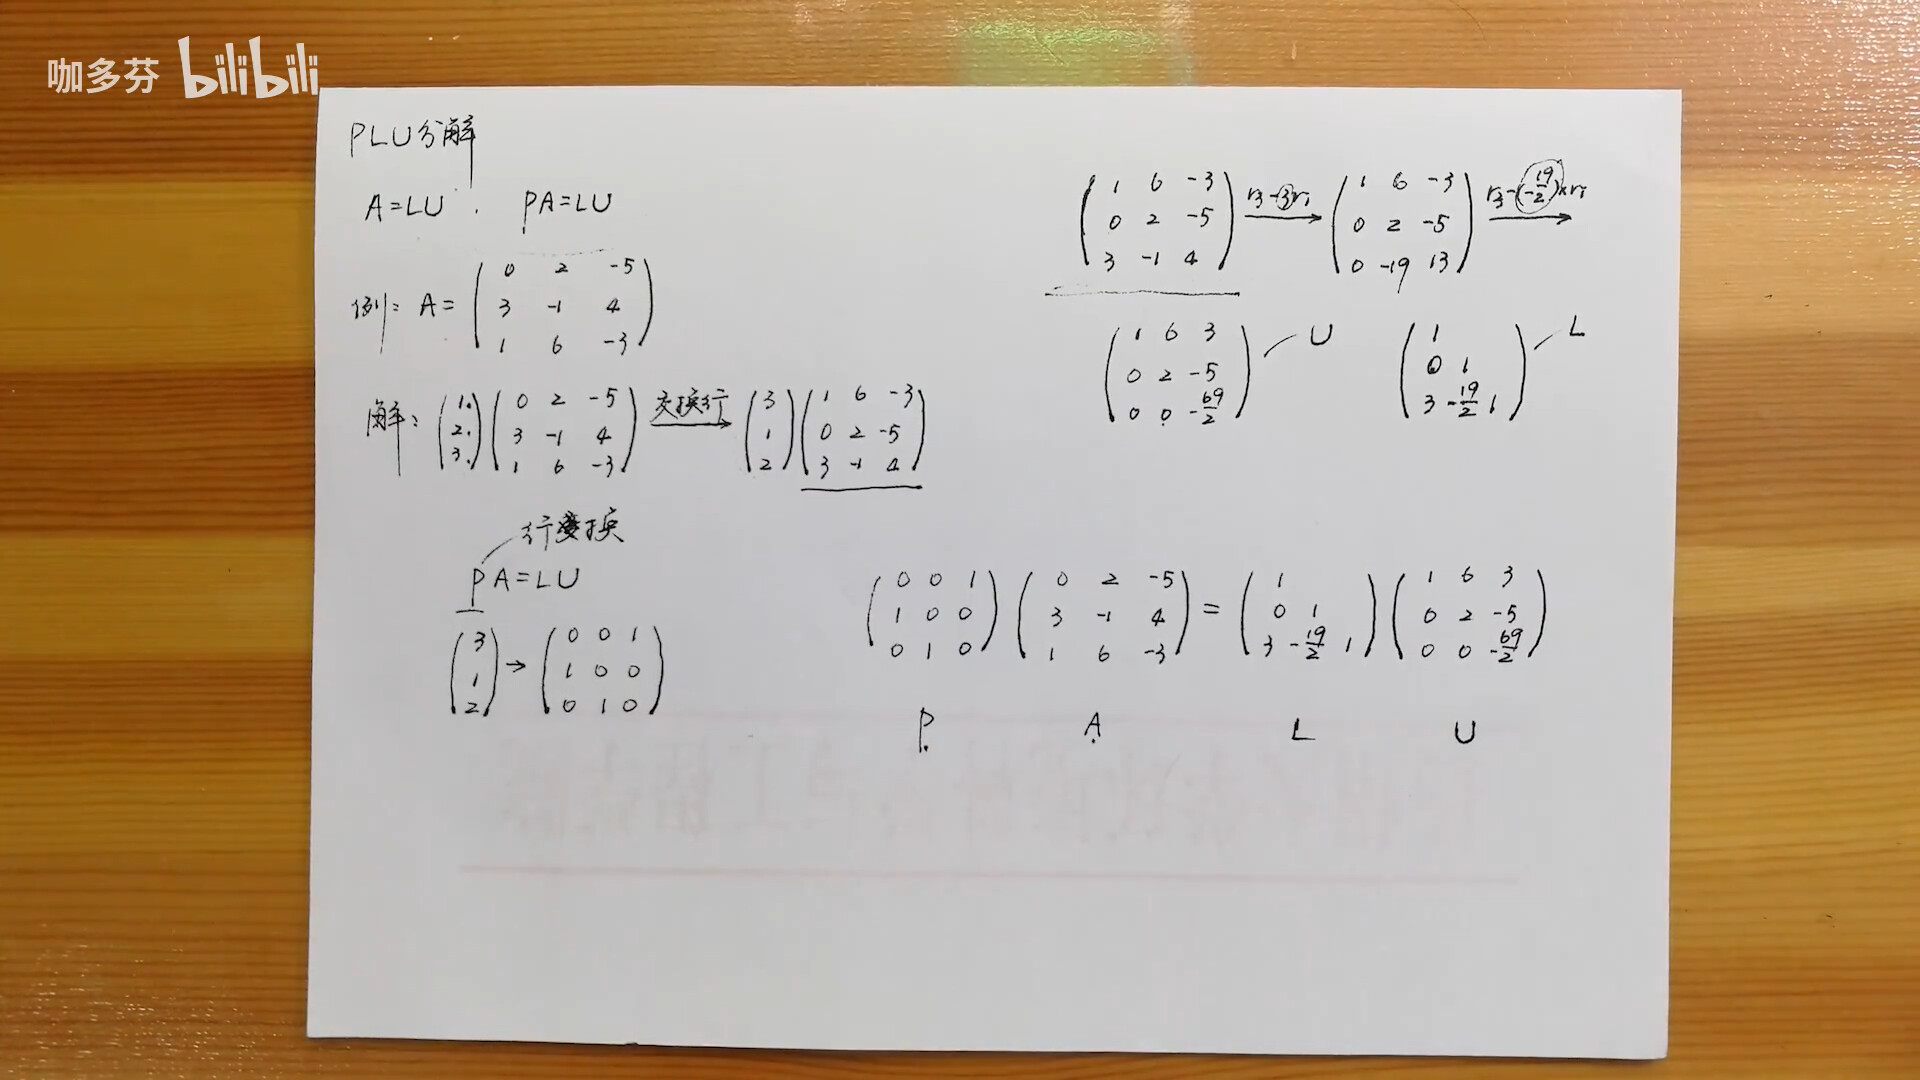 咖多芬 bilibili
PLU分解
A=LU . PA=LU
例: A= ( 0 2 -5
3 -1 4
1 6 -3 )
解: ( 1. 2. 3. ) ( 0 2 -5
3 -1 4
1 6 -3 ) 交换行 → ( 3 1 2 ) ( 1 6 -3
0 2 -5
3 -1 4 )
行变换
PA=LU
( 3 1 2 ) → ( 0 0 1
1 0 0
0 1 0 )
( 1 6 -3
0 2 -5
3 -1 4 ) r3-3r1 → ( 1 6 -3
0 2 -5
0 -19 13 ) r3-(-19/2)×r1 →
( 1 6 3
0 2 -5
0 0 -69/2 ) U
( 1
0 1
3 -19/2 1 ) L
( 0 0 1
1 0 0
0 1 0 ) ( 0 2 -5
3 -1 4
1 6 -3 ) = ( 1
0 1
3 -19/2 1 ) ( 1 6 3
0 2 -5
0 0 -69/2 )
P A L U